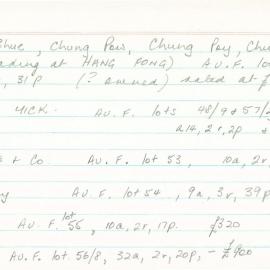 Chue, Chung Pow, Chung Poy, Chu
ading at HANG FONG) AU.F. lot
, 31p (? owned) rated at £
YICK. AU.F. lots 48/9 & 57/
a14, 2r, 2p &
& Co. AU.F. lot 53, 10a, 2r,
y AU.F. lot 54, 9a, 3r, 39p
AU.F. lot 55, 10a, 2r, 17p. £320
AU.F. lot 56/8, 32a, 2r, 20p, - £900